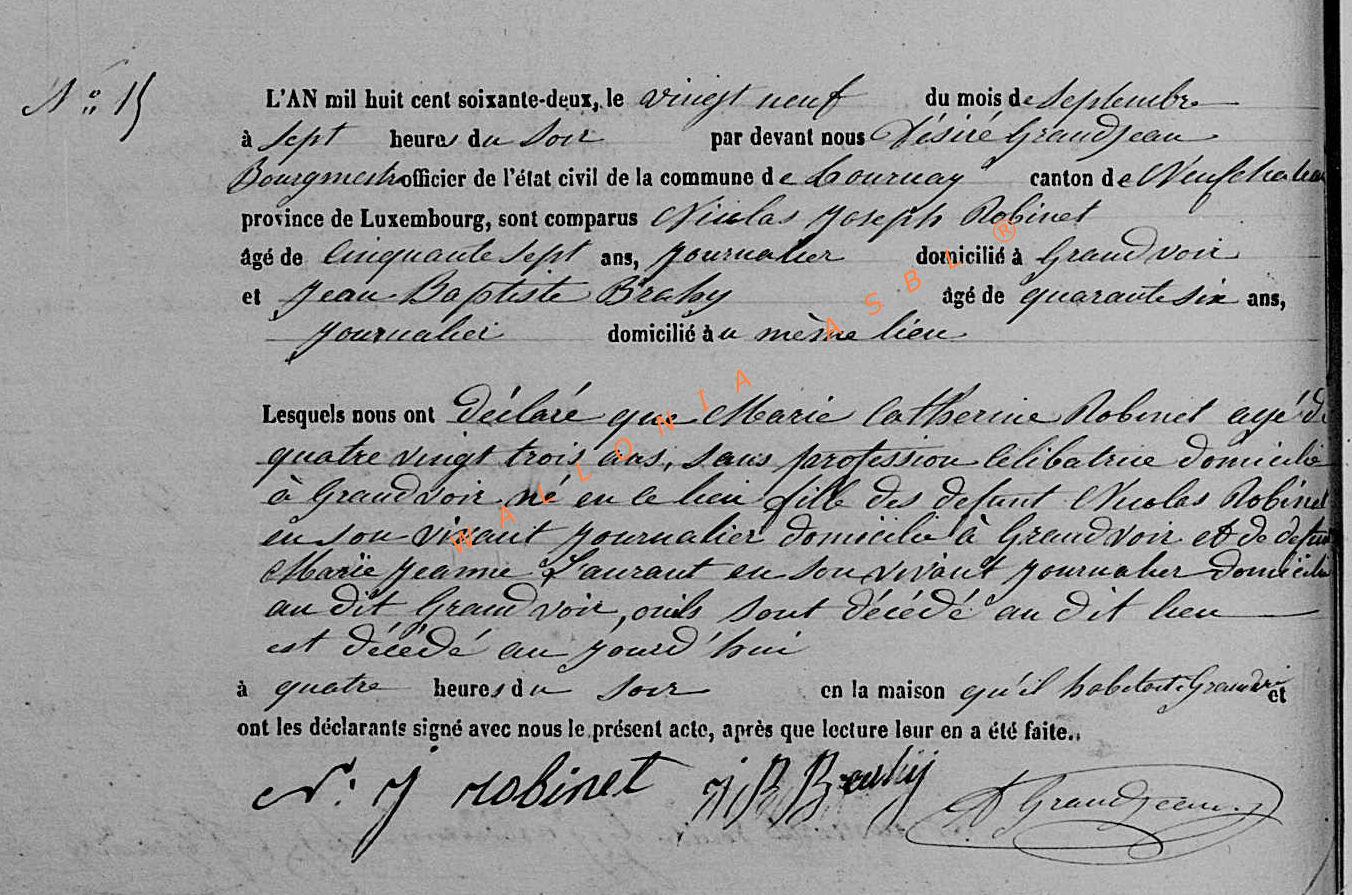 N° 15
L'AN mil huit cent soixante-deux, le vingt neuf du mois de Septembre
à Sept heures du Soir par devant nous Désiré Grandjean
Bourgmestre officier de l'état civil de la commune de Tournay canton de Neufchateau
province de Luxembourg, sont comparus Nicolas Joseph Robinet
âgé de Cinquante Sept ans, Journalier domicilié à Grandvoir
et Jean Baptiste Brahy âgé de quarante six ans,
Journalier domicilié au même lieu
Lesquels nous ont Déclaré que Marie Catherine Robinet agé de
quatre vingt trois ans, sans profession Celibatrice domicilie
à Grandvoir né en ce lieu fille des defunt Nicolas Robinet
en son vivant Journalier domicilie à Grandvoir et de defunt
Marie Jeanne Laurant en son vivant Journalier domicilie
au dit Grandvoir, ou ils sont décédé au dit lieu
est décédé au jourd'hui
à quatre heures du Soir en la maison qu'il habitait à Grandvoir et
ont les déclarants signé avec nous le présent acte, après que lecture leur en a été faite.
N. J Robinet JB Brahy D Grandjean
WALLONIA ASBL ®